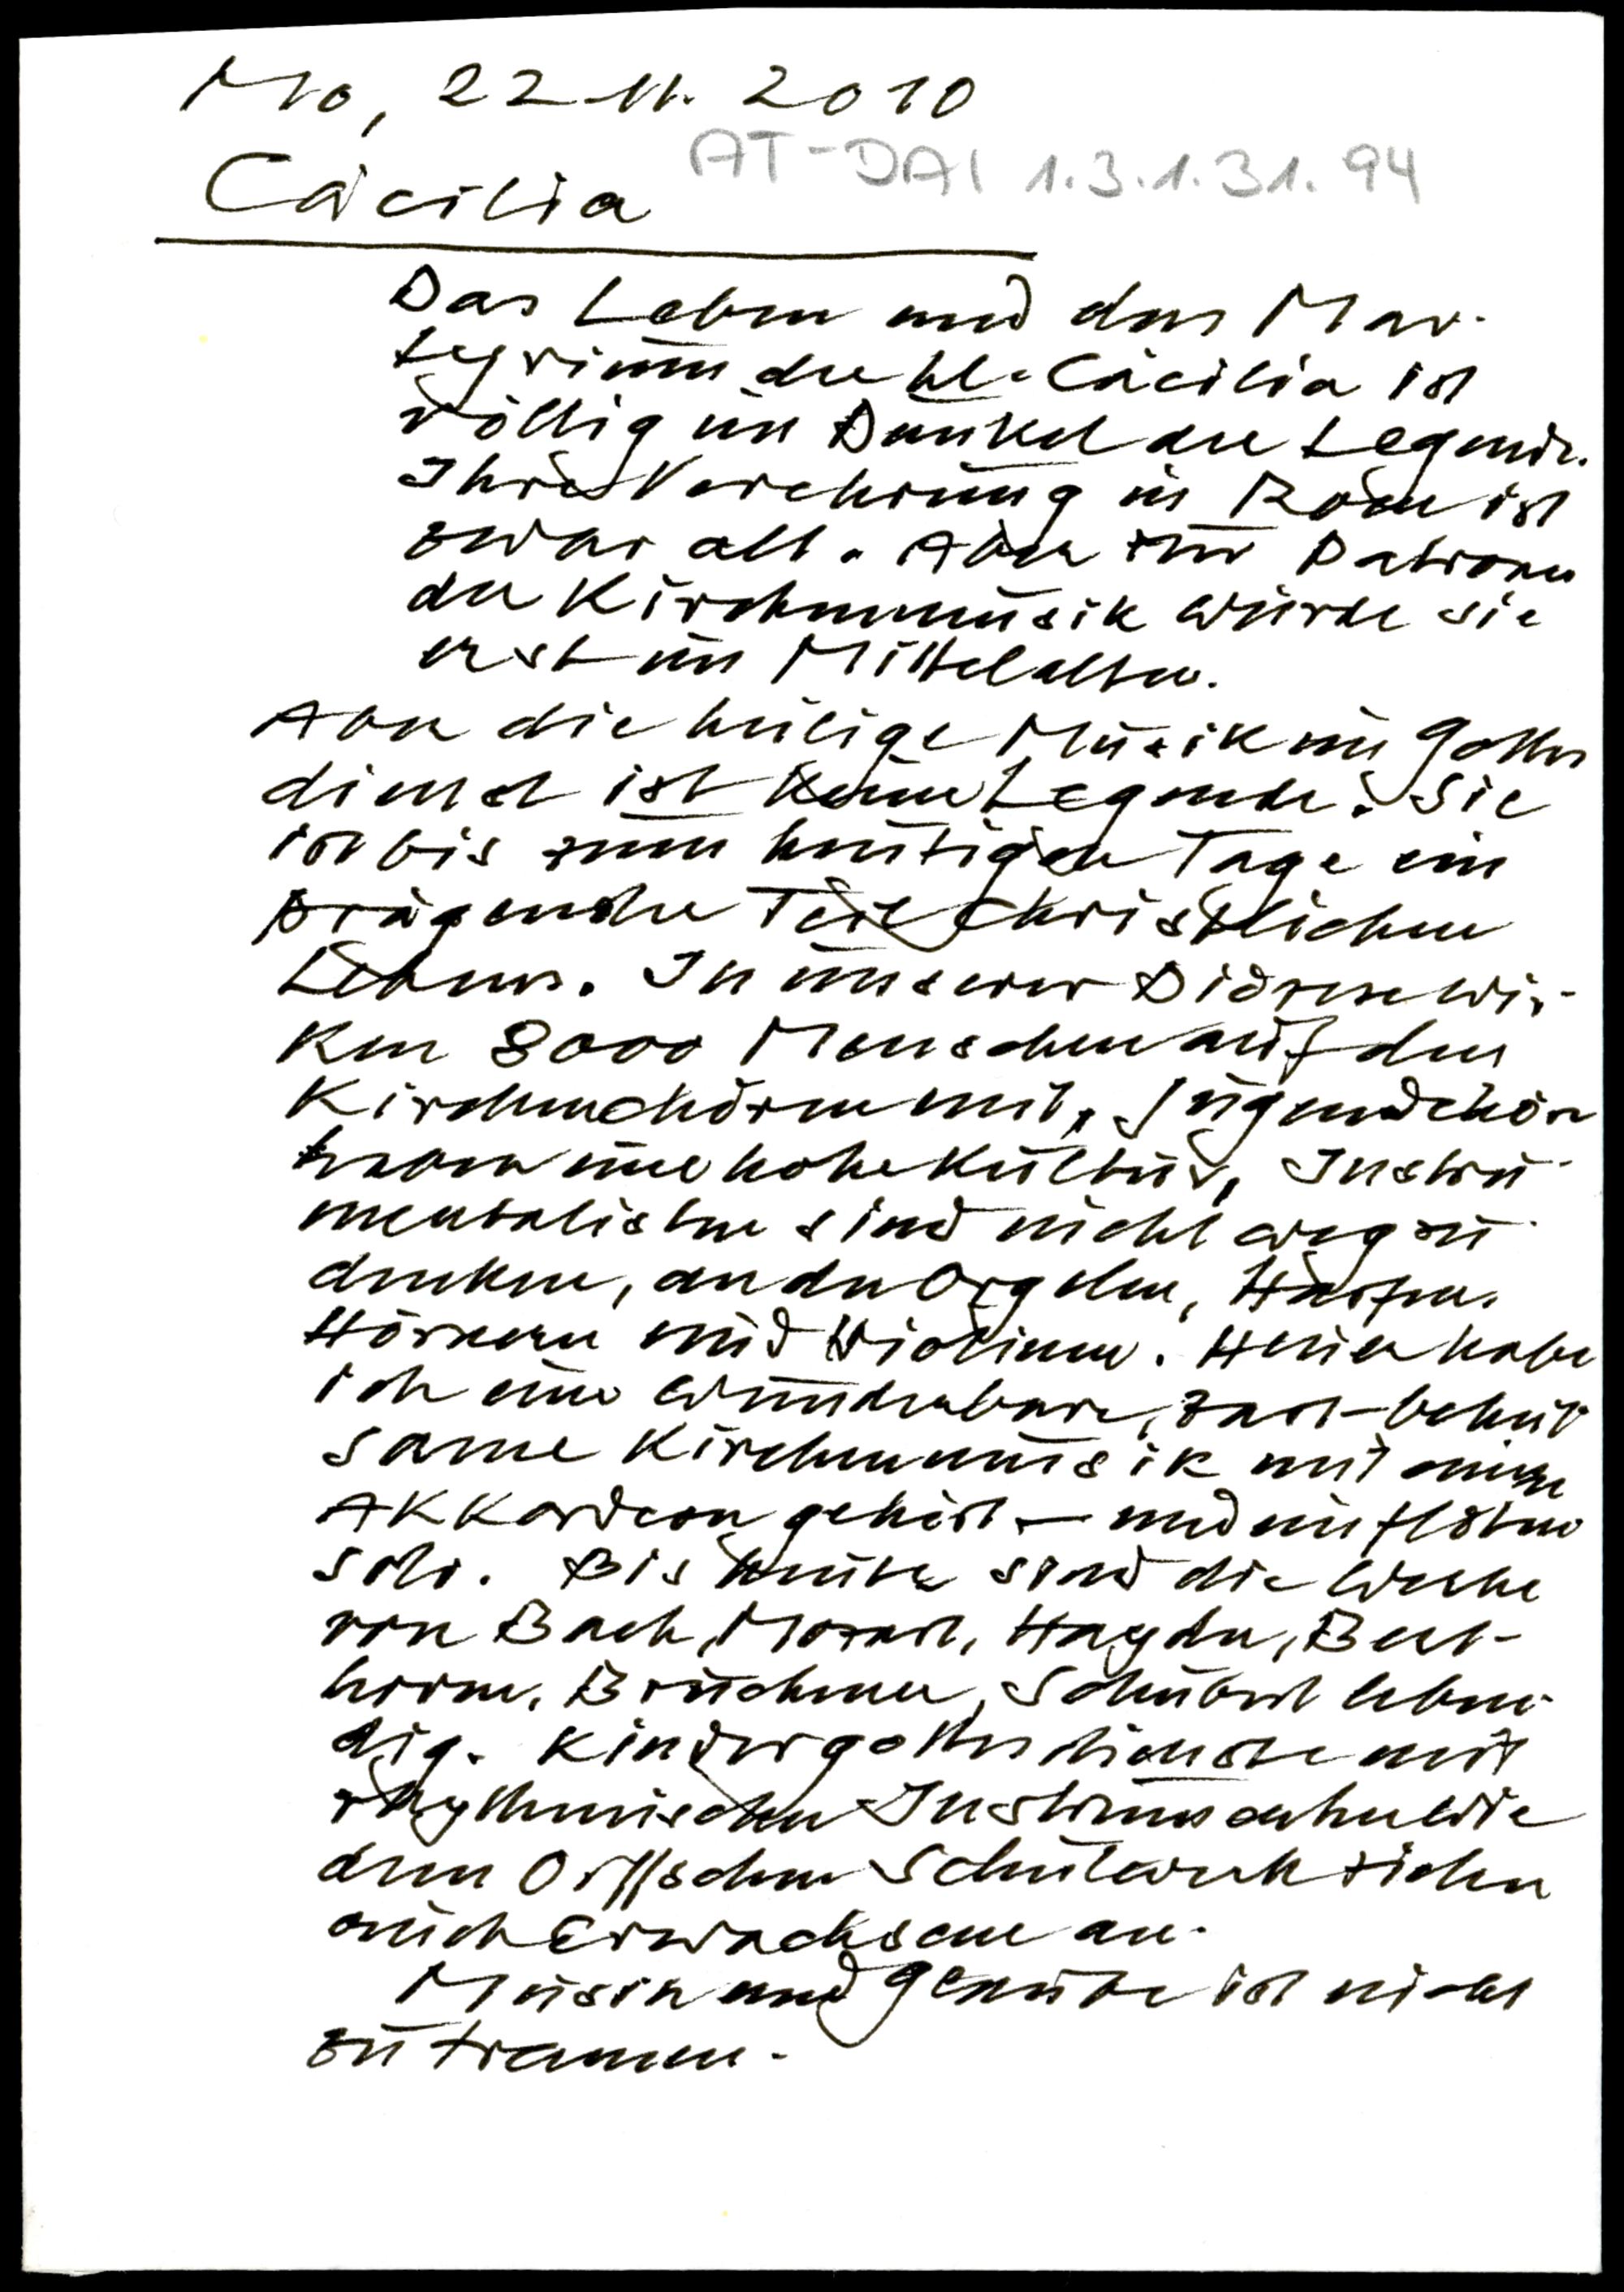 Mo, 22.11.2010
AT-DAI 1.3.1.31.94
Cäcilia
Das Leben und das Mar-
tyrium der hl. Cäcilia ist
völlig im Dunkel der Legende.
Ihre Verehrung in Rom ist
zwar alt. Aber zur Patronin
der Kirchenmusik wurde sie
erst im Mittelalter.
Aber die heilige Musik im Gottes
dienst ist keine Legende. Sie
ist bis zum heutigen Tage ein
prägender Teil christlichen
Lebens. In unserer Diözese wir-
ken 8000 Menschen auf den
Kirchenchören mit, Jugendchöre
haben eine hohe Kultur, Instru-
mentalisten sind nicht wegzu-
denken, an den Orgeln, Harfen,
Hörnern und Violinen. Heuer habe
ich eine wunderbare, zart-behut-
same Kirchenmusik mit einem
Akkordeon gehört – und mit Flöten
solo. Bis heute sind die Werke
von Bach, Mozart, Haydn, Beet-
hoven, Bruckner, Schubert leben-
dig. Kindergottesdienste mit
rhythmischen Instrumenten wie
dem Orffschen Schulwerk ziehen
auch Erwachsene an.
Musik und Glaube ist nicht
zu trennen.